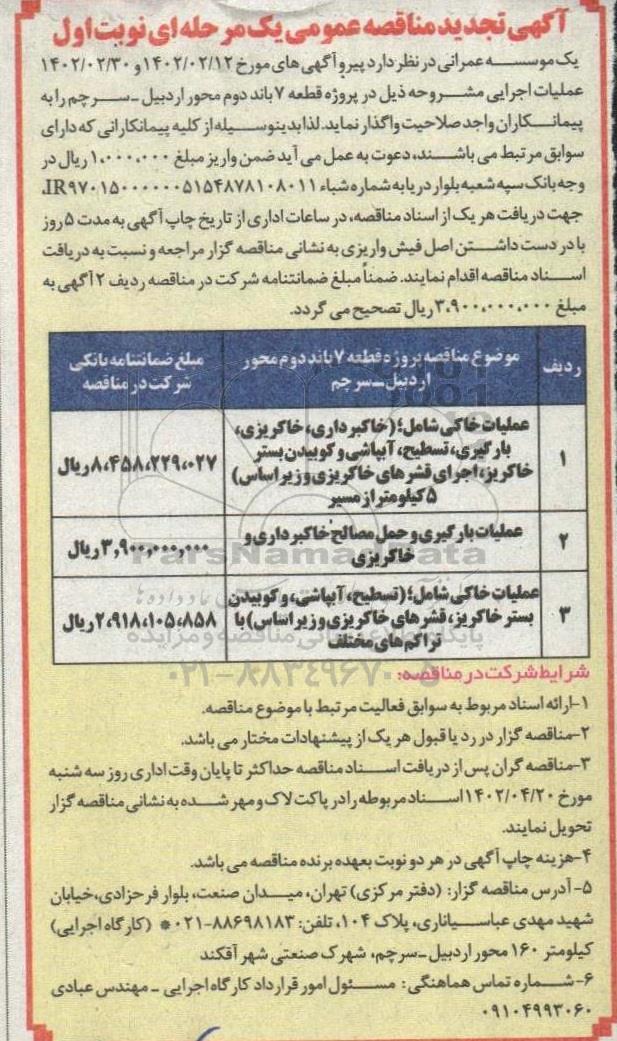 آگهی تجدید مناقصه عمومی یک مرحله ای نوبت اول
یک موسسه عمرانی در نظر دارد پیرو آگهی های مورخ ۱۴۰۲/۰۲/۱۲ و ۱۴۰۲/۰۲/۳۰
عملیات اجرایی مشروحه ذیل در پروژه قطعه ۷ باند دوم محور اردبیل ـ سرچم را به
پیمانکاران واجد صلاحیت واگذار نماید. لذا بدینوسیله از کلیه پیمانکارانی که دارای
سوابق مرتبط می باشند، دعوت به عمل می آید ضمن واریز مبلغ ۱،۰۰۰،۰۰۰ ریال در
وجه بانک سپه شعبه بلوار دریا به شماره شباء IR۹۷۰۱۵۰۰۰۰۰۰۵۱۵۴۸۷۸۱۰۸۰۱۱،
جهت دریافت هر یک از اسناد مناقصه، در ساعات اداری از تاریخ چاپ آگهی به مدت ۵ روز
با در دست داشتن اصل فیش واریزی به نشانی مناقصه گزار مراجعه و نسبت به دریافت
اسناد مناقصه اقدام نمایند. ضمناً مبلغ ضمانتنامه شرکت در مناقصه ردیف ۲ آگهی به
مبلغ ۳،۹۰۰،۰۰۰،۰۰۰ ریال تصحیح می گردد.
ردیف موضوع مناقصه پروژه قطعه ۷ باند دوم محور اردبیل ـ سرچم مبلغ ضمانتنامه بانکی شرکت در مناقصه
۱ عملیات خاکی شامل؛ (خاکبرداری، خاکریزی،
بارگیری، تسطیح، آبپاشی و کوبیدن بستر
خاکریز، اجرای قشرهای خاکریزی و زیراساس) ۸،۴۵۸،۲۲۹،۰۲۷ ریال
۵ کیلومتر از مسیر
۲ عملیات بارگیری و حمل مصالح خاکبرداری و ۳,۹۰۰,۰۰۰,۰۰۰ ریال
خاکریزی
۳ عملیات خاکی شامل؛ (تسطیح، آبپاشی، و کوبیدن
بستر خاکریز، قشرهای خاکریزی و زیراساس) با ۲،۹۱۸،۱۰۵،۸۵۸ ریال
تراکم های مختلف
ParsNamadData
پایگاه اطلاع رسانی مناقصه و مزایده
۰۲۱-۸۸۳۴۹۶۷۰-۵
شرایط شرکت در مناقصه:
۱-ارائه اسناد مربوط به سوابق فعالیت مرتبط با موضوع مناقصه.
۲-مناقصه گزار در رد یا قبول هر یک از پیشنهادات مختار می باشد.
۳-مناقصه گران پس از دریافت اسناد مناقصه حداکثر تا پایان وقت اداری روز سه شنبه
مورخ ۱۴۰۲/۰۴/۲۰ اسناد مربوطه را در پاکت لاک و مهر شده به نشانی مناقصه گزار
تحویل نمایند.
۴-هزینه چاپ آگهی در هر دو نوبت بعهده برنده مناقصه می باشد.
۵- آدرس مناقصه گزار: (دفتر مرکزی) تهران، میدان صنعت، بلوار فرحزادی، خیابان
شهید مهدی عباسیاناری، پلاک ۱۰۴، تلفن: ۸۸۶۹۸۱۸۳-۰۲۱ * (کارگاه اجرایی)
کیلومتر ۱۶۰ محور اردبیل ـ سرچم، شهرک صنعتی شهر آقکند
۶-شماره تماس هماهنگی: مسئول امور قرارداد کارگاه اجرایی ـ مهندس عبادی
۰۹۱۰۴۹۹۳۰۶۰